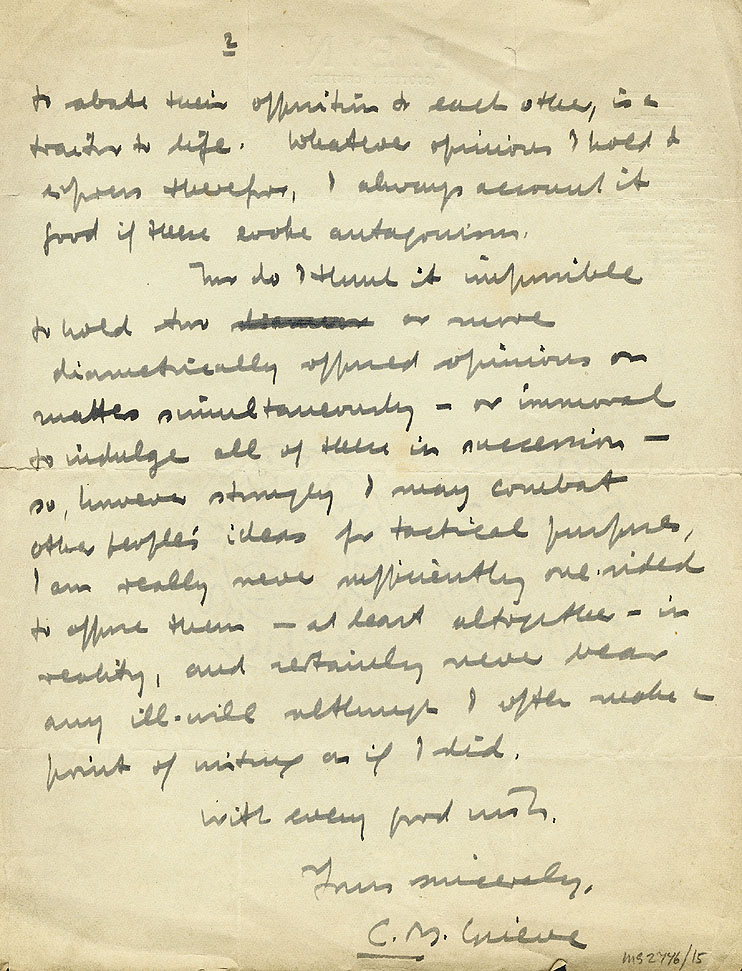 2
to abate their opposition to each other, is a
traitor to life. Whatever opinions I hold &
express therefor, I always account it
good if these evoke antagonism.
Nor do I think it impossible
to hold two or more
diametrically opposed opinions on
matters simultaneously – or immoral
to indulge all of these in succession –
so, however strongly I may combat
other people's ideas for tactical purposes,
I am really never sufficiently one-sided
to oppose them – at least altogether – in
reality, and certainly never bear
any ill-will although I often make a
point of writing as if I did.
With every good wish.
Yours sincerely,
C. M. Grieve
MS 2746/15